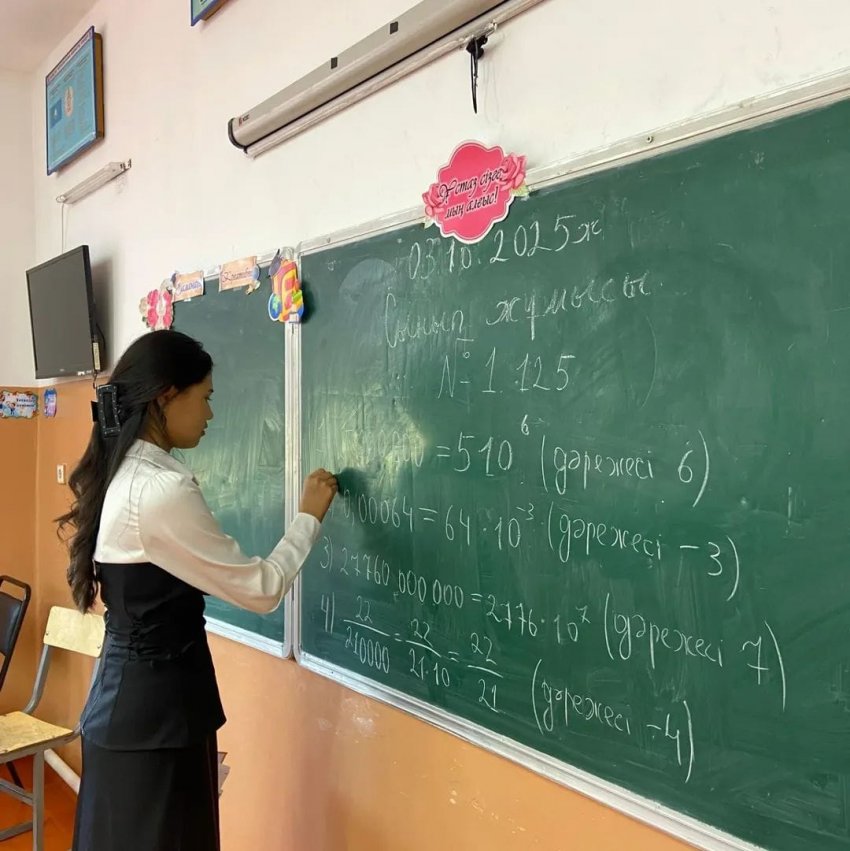 Ұстаз сізге
мың алғыс!
03.10.2025ж
Сынып жұмысы.
№ 1.125
= 5 10⁶ (дәрежесі 6)
0,00064 = 64 · 10⁻³ (дәрежесі -3)
3) 27760 000 000 = 2776 · 10⁷ (дәрежесі 7)
4) 22/210000 = 22/21·10 = 22/21 (дәрежесі -4)